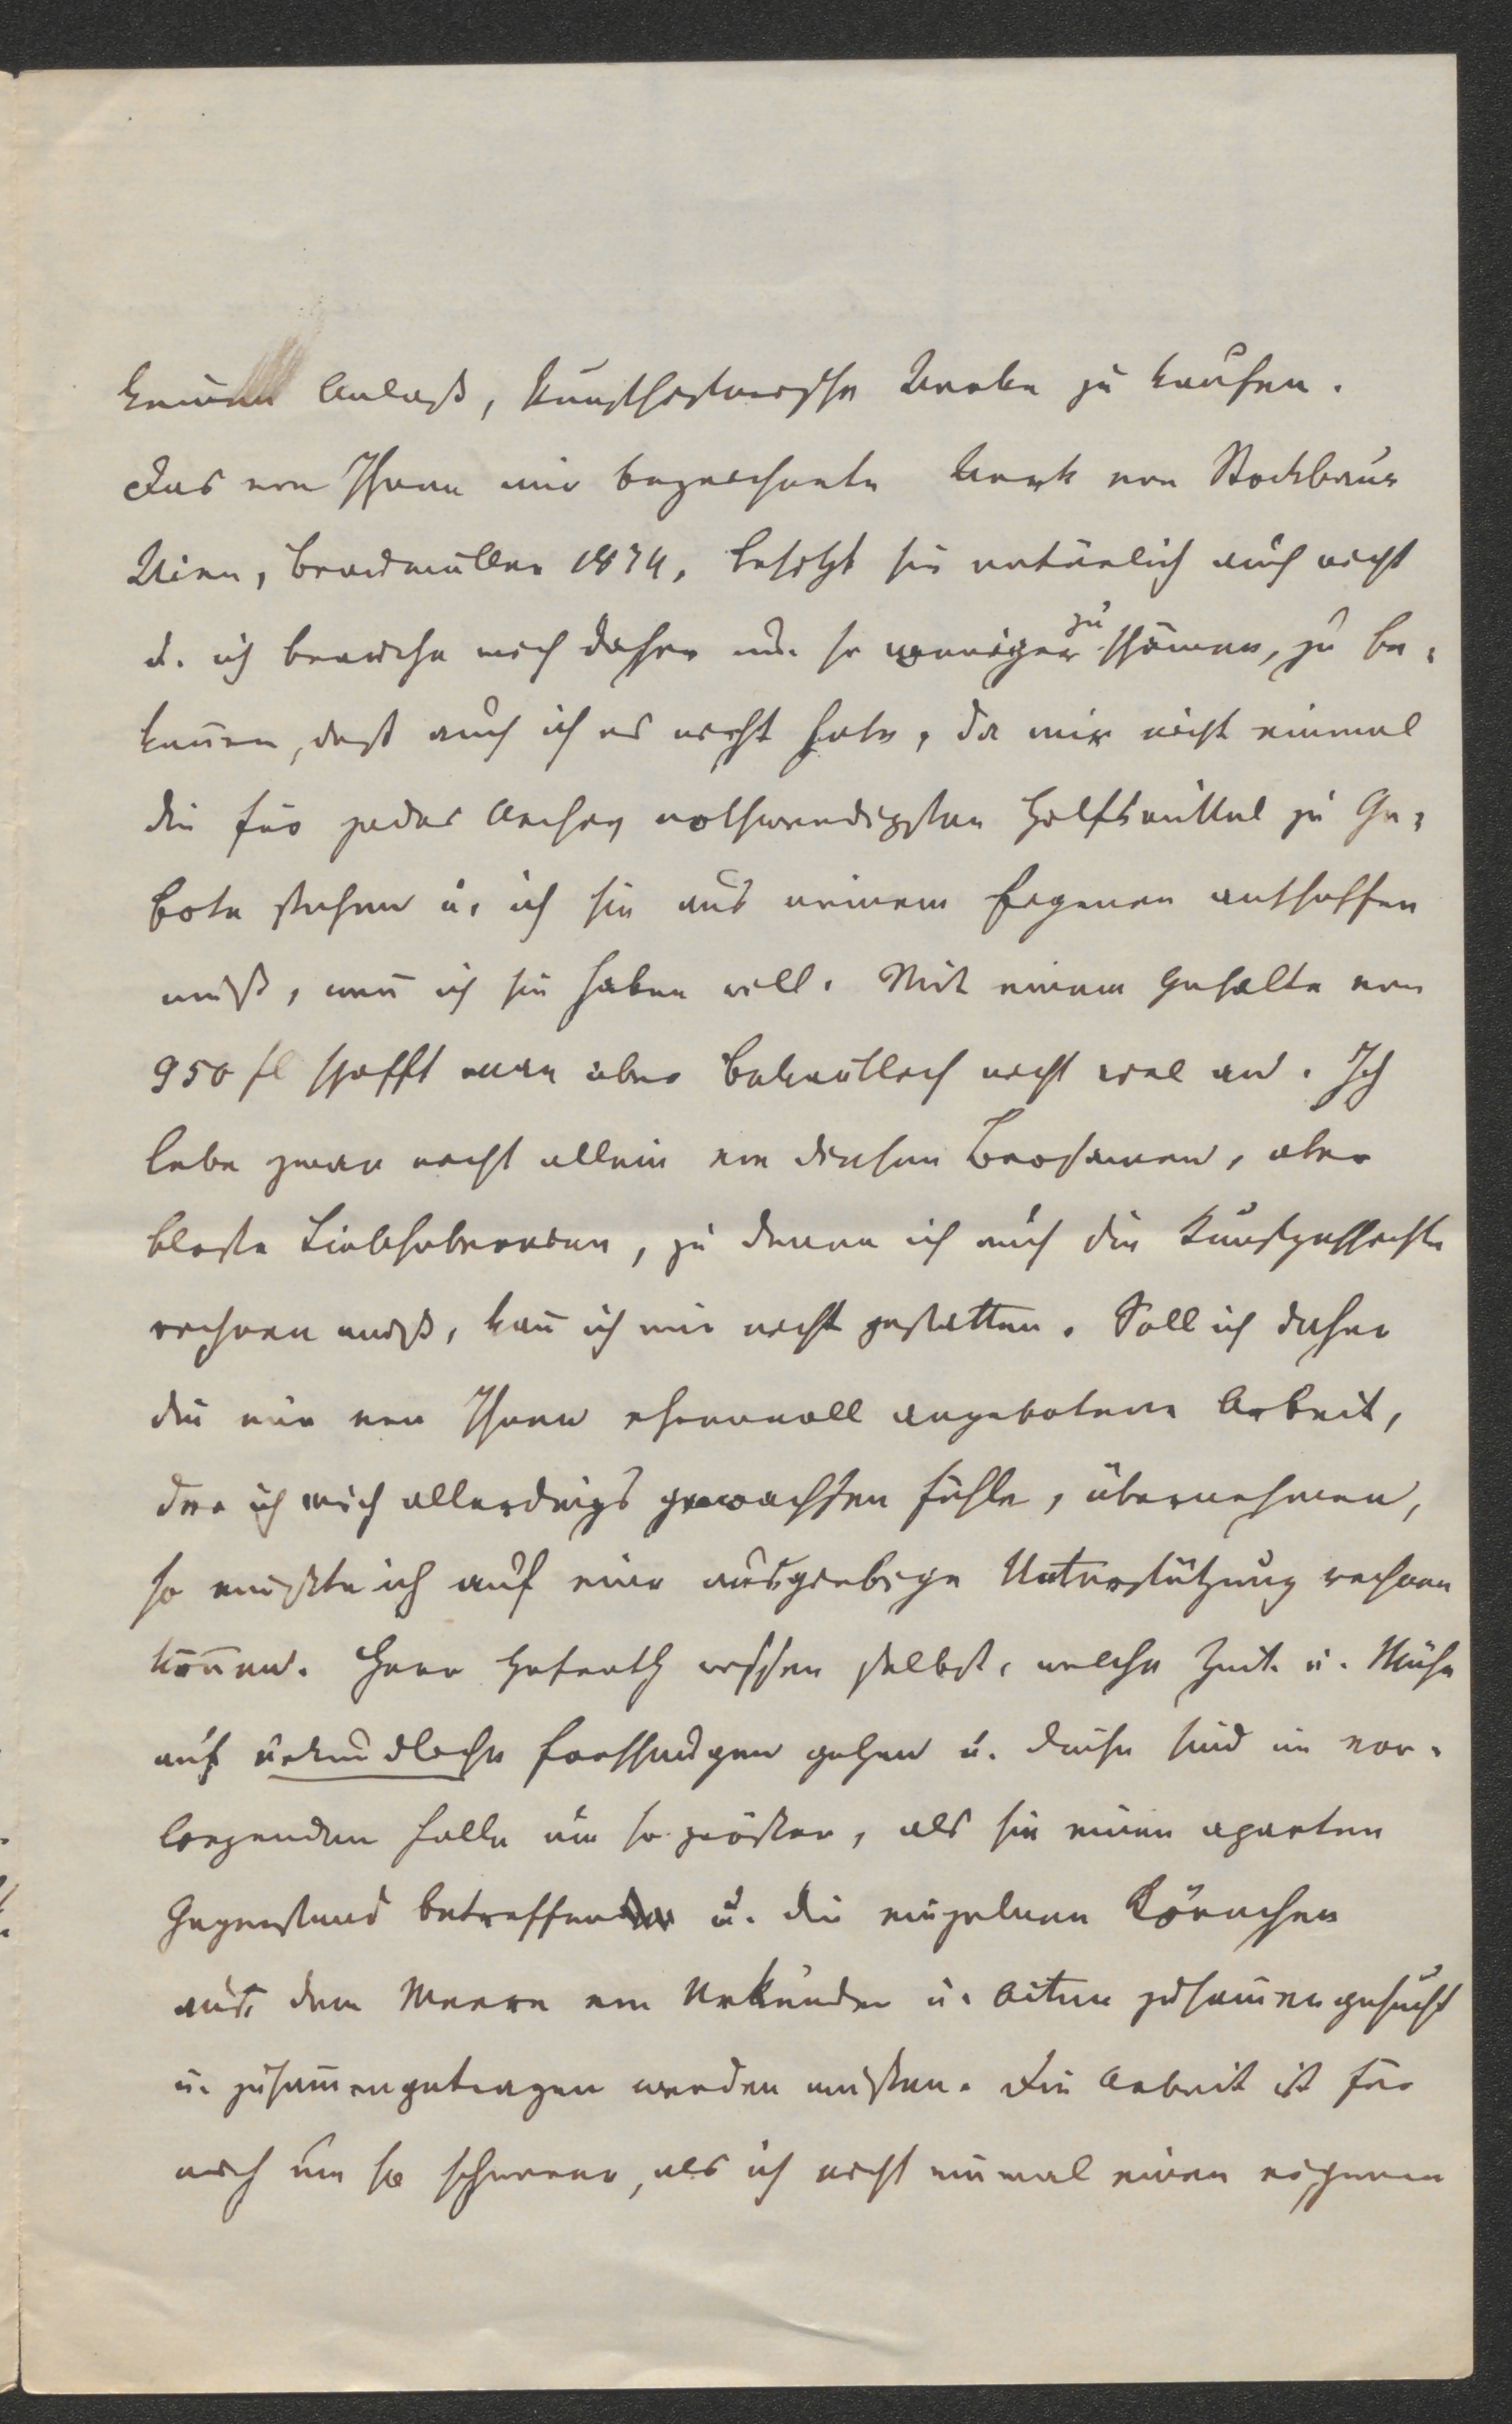 keinen Anlaß, kunsthistorische Werke zu kaufen.
Das von Ihnen mir bezeichnete Werk von Stockbauer
Wien, Braumüller 1874, besitzt sie natürlich auch nicht
u. ich brauche mich daher um so weniger zu schämen, zu be-
kennen, daß auch ich es nicht habe, da mir nicht einmal
die für jedes Archiv nothwendigsten Hilfsmittel zu Ge-
bote stehen u. ich sie aus meinem Eigenen anschaffen
muß, wenn ich sie haben will. Mit einem Gehalte von
950 fl schafft man aber bekanntlich nicht viel an. Ich
lebe zwar nicht allein von diesen Brosamen, aber
bloße Liebhabereien, zu denen ich auch die Kunstgeschichte
rechnen muß, kann ich mir nicht gestatten. Soll ich daher
die mir von Ihnen ehrenvoll angebotene Arbeit,
der ich mich allerdings gewachsen fühle, übernehmen,
so müßte ich auf eine ausgiebige Unterstützung rechnen
können. Herr Hofrath wissen selbst, welche Zeit u. Mühe
auf urkundliche Forschungen gehen u. diese sind im vor-
liegenden Falle um so größer, als sie einen aparten
Gegenstand betreffen u. die einzelnen Körnchen
aus dem Meere von Urkunden u. Akten zusammengesucht
u. zusammengetragen werden müßen. Die Arbeit ist für
mich um so schwerer, als ich nicht einmal einen eigenen